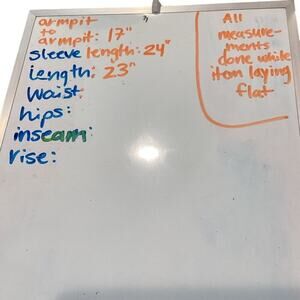 armpit
to
armpit: 17"
sleeve length: 24"
length: 23"
waist:
hips:
inseam:
rise:
All
measure-
ments
done while
item laying
flat